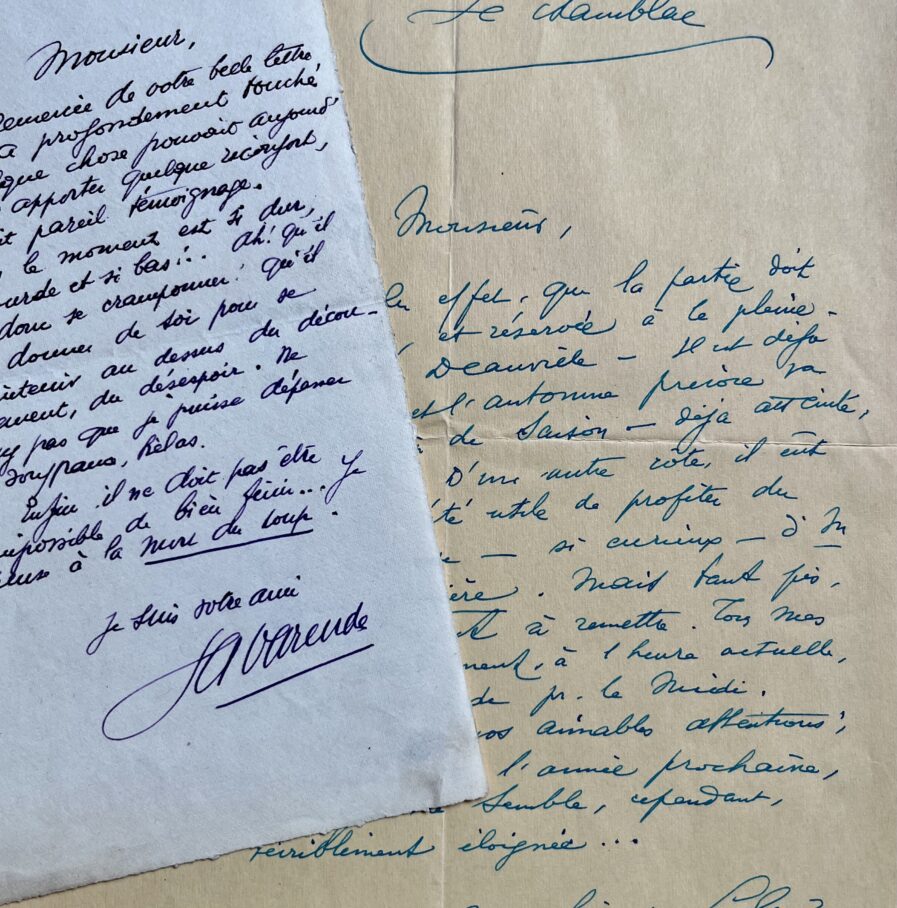 Monsieur,
remercie de votre belle lettre
a profondément touché
que chose pouvait aujourd'
apporter quelque réconfort,
it pareil témoignage.
le moment est si dur,
urde et si bas!.. Ah! qu'il
donc se cramponner! qu'il
donner de soi pour se
intenir au dessus du décou-
ement, du désespoir. Ne
pas que je puisse dépasser
hélas.
Enfin il ne doit pas être
impossible de bien finir... Je
ense à la Mort du Loup.
Je suis votre ami
La Varende
Le Chamblac
Monsieur,
En effet, que la partie doit
, et réservée à la pleine-
Deauville - Il est déjà
et l'automne précoce
de saison - déjà atteinte,
D'un autre côté, il eût
té utile de profiter du
- si curieux - d'In
ère. Mais tant pis,
à remettre. Tous mes
ment, à l'heure actuelle,
pr. le Midi.
vos aimables attentions;
l'année prochaine,
semble, cependant,
terriblement éloignée...